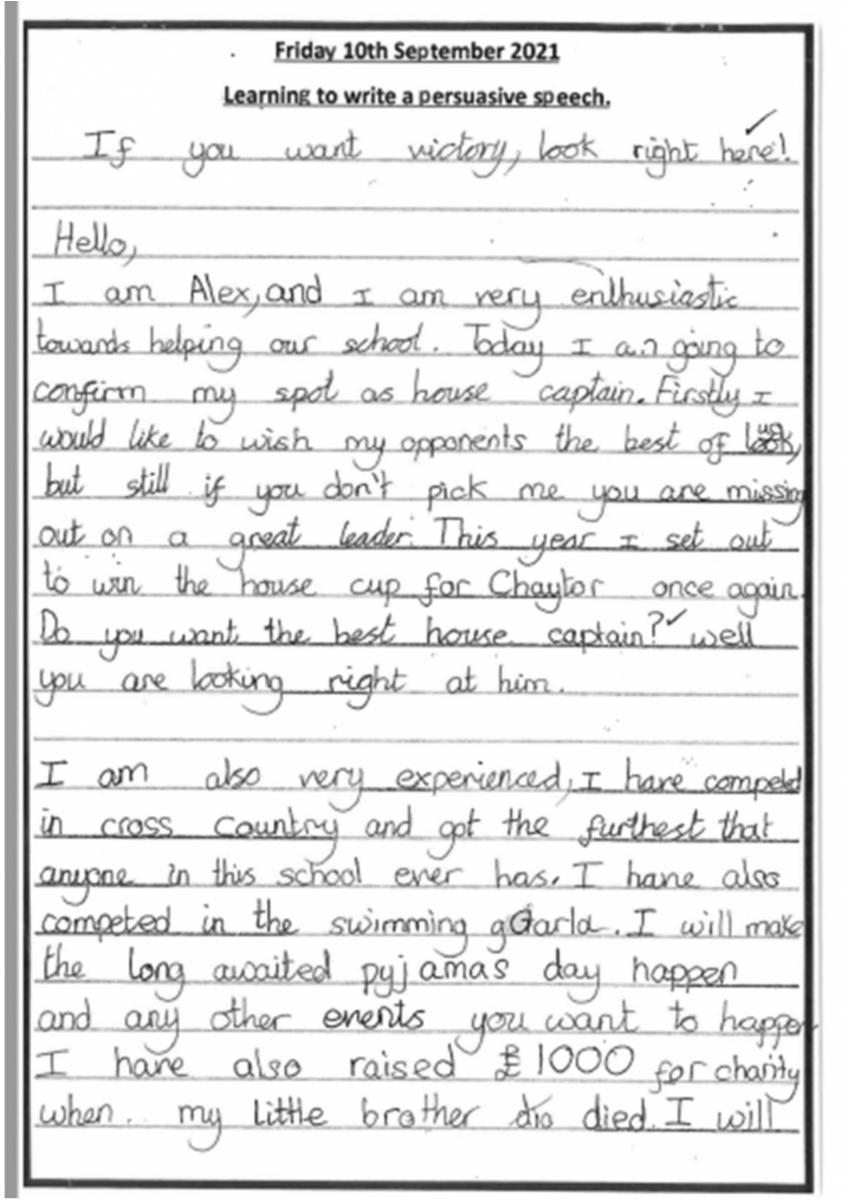 Friday 10th September 2021
Learning to write a persuasive speech.
If you want victory, look right here!
Hello,
I am Alex, and I am very enthusiastic
towards helping our school. Today I am going to
confirm my spot as house captain. Firstly I
would like to wish my opponents the best of luck,
but still if you don't pick me you are missing
out on a great leader. This year I set out
to win the house cup for Chaytor once again.
Do you want the best house captain? well
you are looking right at him.
I am also very experienced, I have competd
in cross country and got the furthest that
anyone in this school ever has. I have also
competed in the swimming . I will make
the long awaited pyjamas day happen
and any other events you want to happen
I have also raised £1000 for charity
when my little brother died. I will